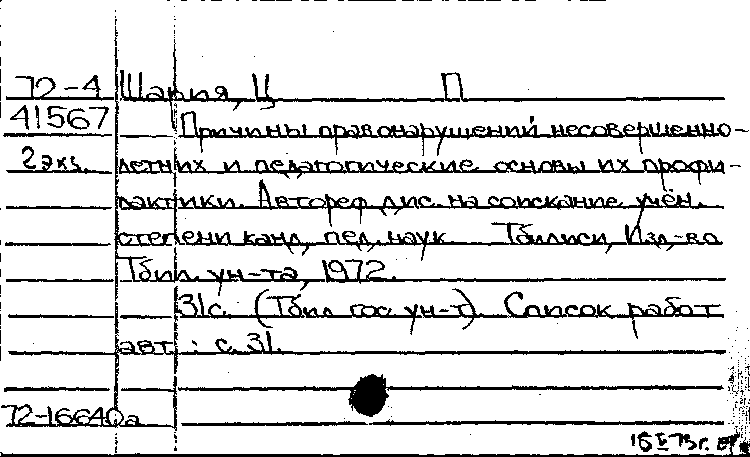 72-4 Шария, Ц П
41567 Причины правонарушений несовершенно-
2 экз. летних и педагогические основы их профи-
лактики. Автореф. дис. на соискание учён.
степени канд. пед. наук. Тбилиси, Изд-во
Тбил. ун-та, 1972.
31с. (Тбил. гос. ун-т). Список работ
авт.: с. 31.
72-16640а